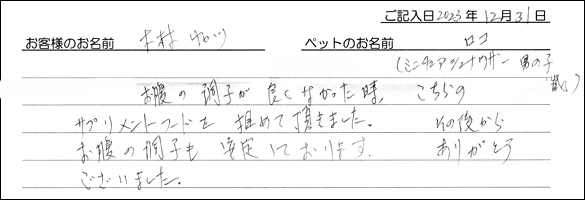 ご記入日 2023年 12月31日
お客様のお名前 木村 ペットのお名前 ロコ
(ミニチュアシュナウザー 男の子
お腹の調子が良くなかった時、こちらの
サプリメントフードを 進めて頂きました。 その後から
お腹の調子も 安定しております。 ありがとう
ございました。